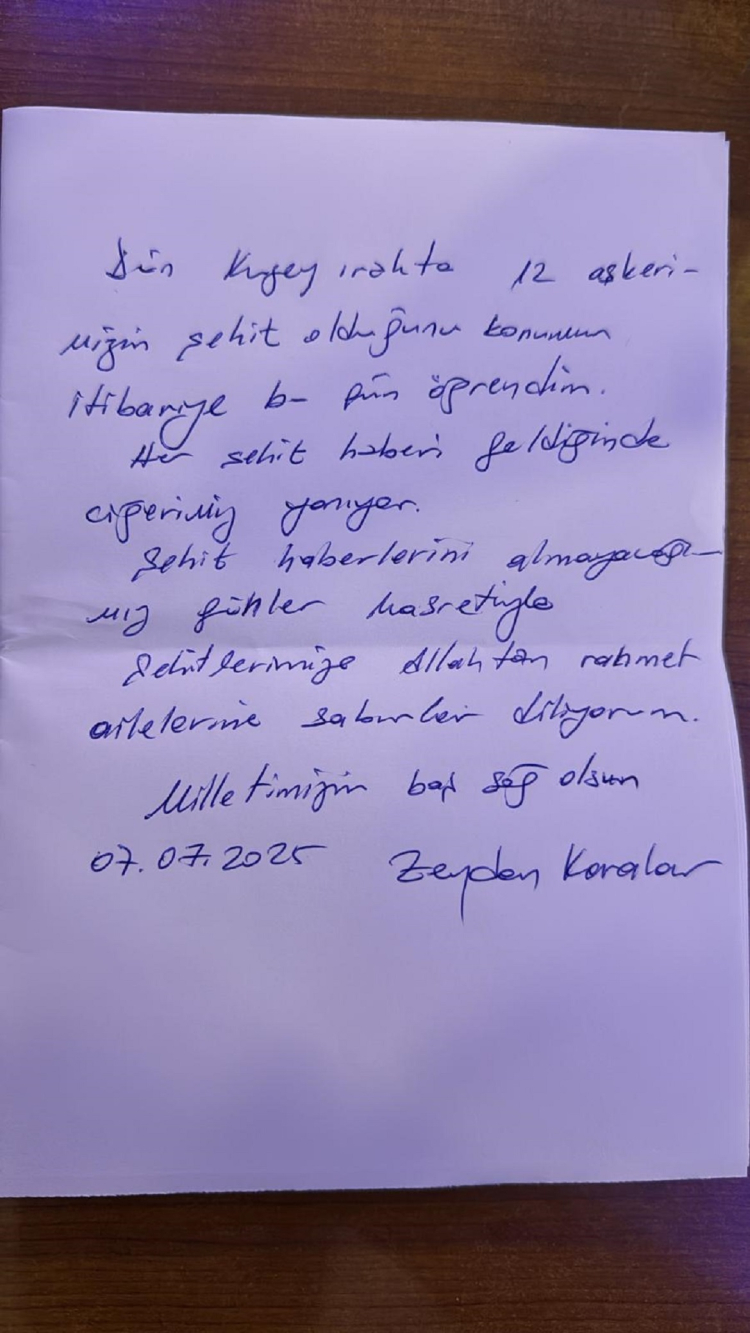 Dün Kuzey ırakta 12 askeri-
mizin şehit olduğunu konumum
itibariyle bu gün öğrendim.
Her şehit haberi geldiğinde
ciğerimiz yanıyor.
Şehit haberlerini almayacağı-
mız günler hasretiyle
Şehitlerimize Allahtan rahmet
ailelerine sabırlar diliyorum.
Milletimizin başı sağ olsun
07.07.2025 Zeydan Karalar